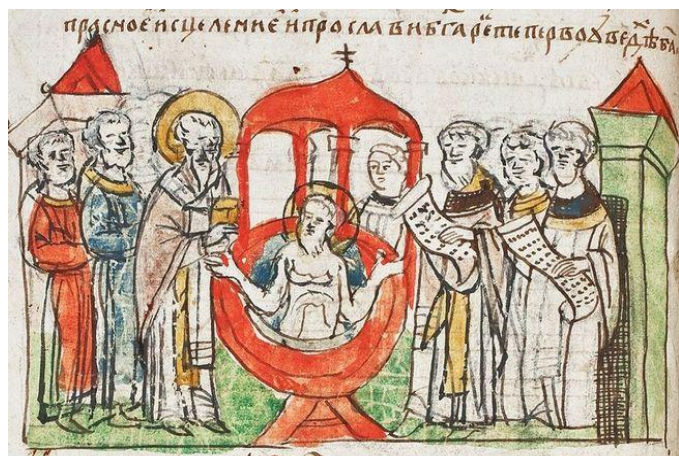 прасное исцеление и прослави бга ре҃ теперво ꙋведⷯѣ ба